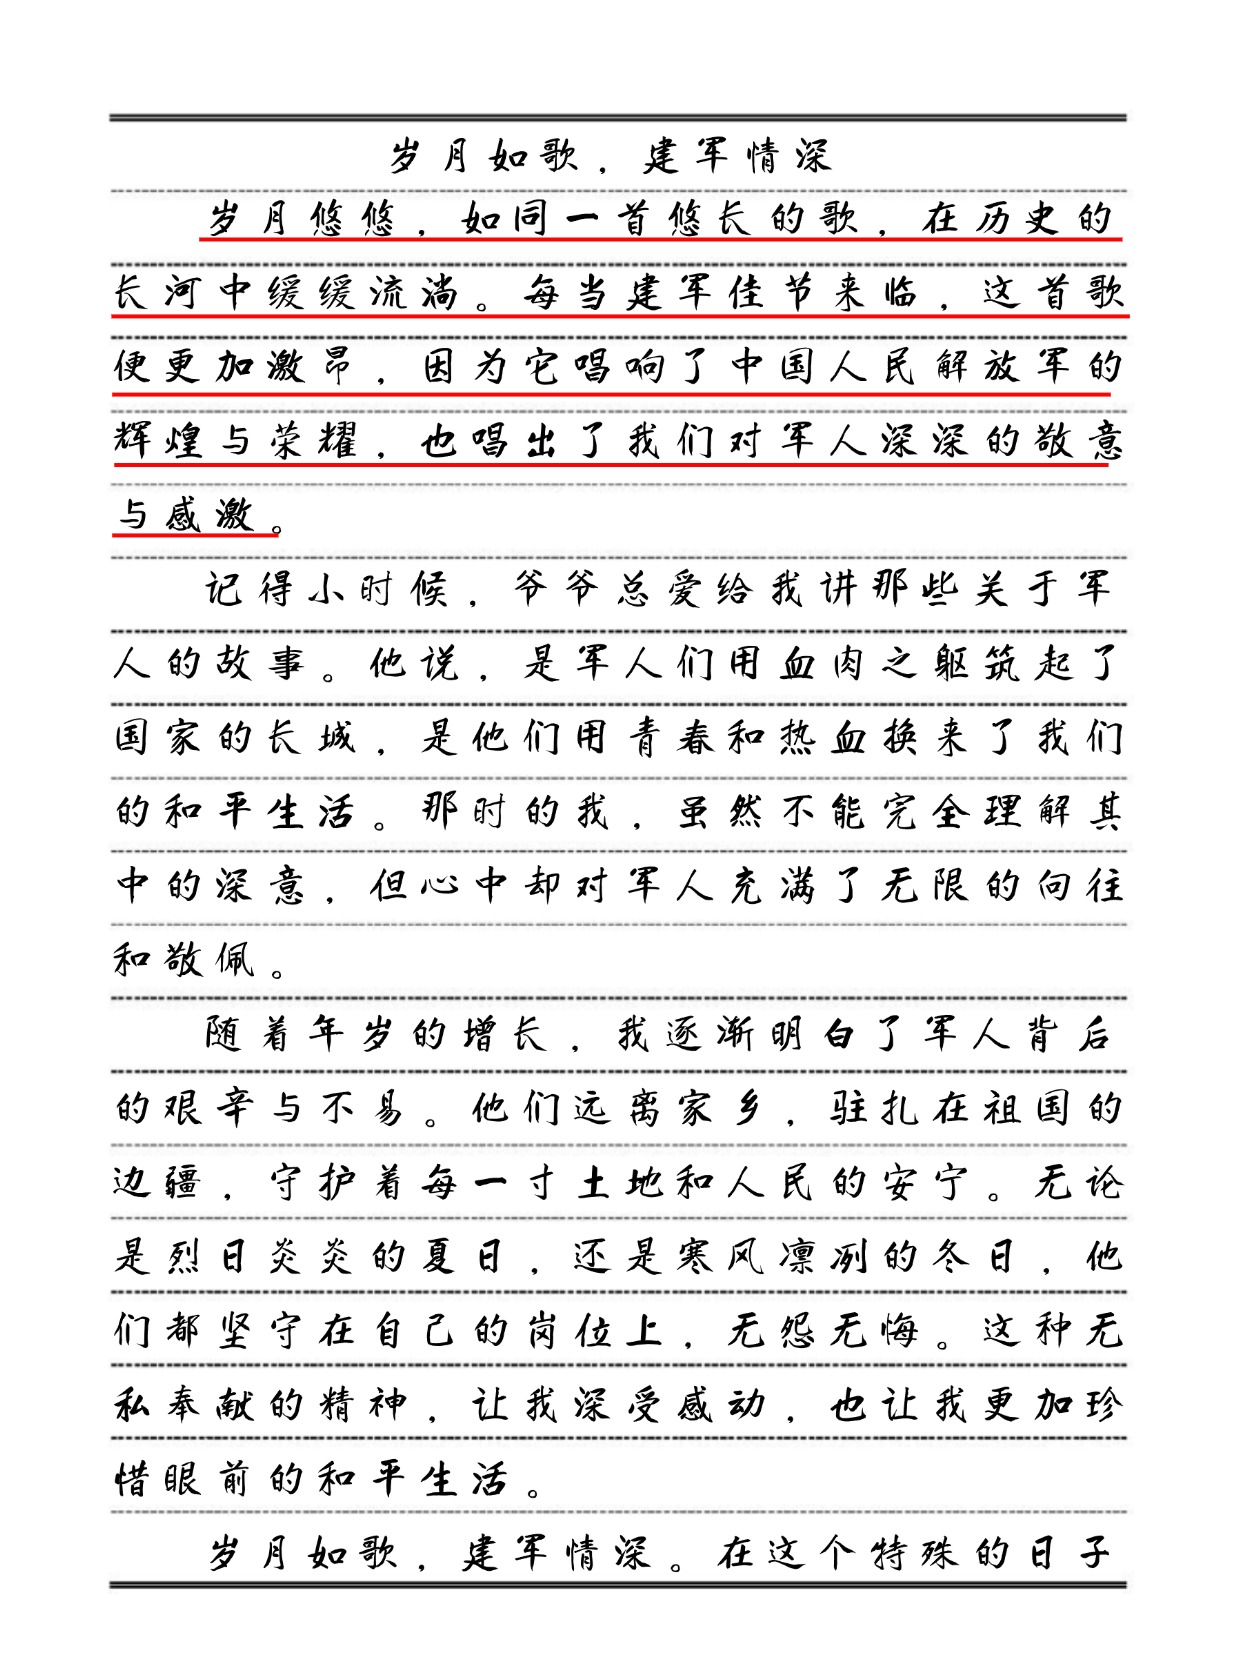 岁月如歌，建军情深
岁月悠悠，如同一首悠长的歌，在历史的
长河中缓缓流淌。每当建军佳节来临，这首歌
便更加激昂，因为它唱响了中国人民解放军的
辉煌与荣耀，也唱出了我们对军人深深的敬意
与感激。
记得小时候，爷爷总爱给我讲那些关于军
人的故事。他说，是军人们用血肉之躯筑起了
国家的长城，是他们用青春和热血换来了我们
的和平生活。那时的我，虽然不能完全理解其
中的深意，但心中却对军人充满了无限的向往
和敬佩。
随着年岁的增长，我逐渐明白了军人背后
的艰辛与不易。他们远离家乡，驻扎在祖国的
边疆，守护着每一寸土地和人民的安宁。无论
是烈日炎炎的夏日，还是寒风凛冽的冬日，他
们都坚守在自己的岗位上，无怨无悔。这种无
私奉献的精神，让我深受感动，也让我更加珍
惜眼前的和平生活。
岁月如歌，建军情深。在这个特殊的日子